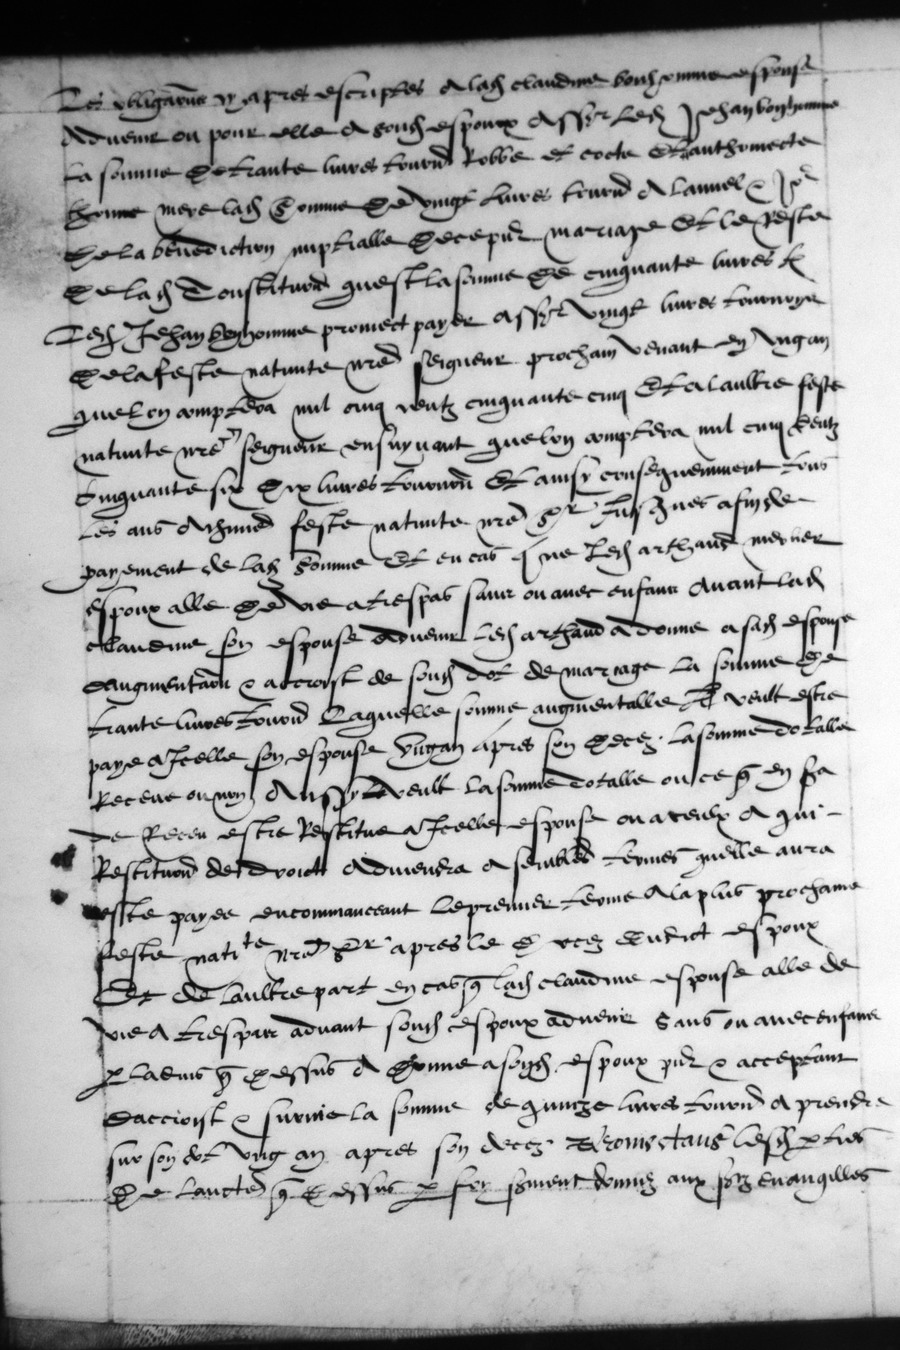 Les obligations cy apres escriptes a lad claudine bonhomme espouse
advenir ou pour elle a sond espoux assr led Jehan bonhomme
la somme de trante livres tourn Robbe et cocte et anthoinecte
mere lad somme de vingt livres tourn a lannel Jor
de la benediction nuptialle de ce pnt mariage et le Reste
de lad Constitution quest la somme de cinquante livres tz
Led Jehan bonhomme promect payer assr vingt livres tournoys
de la feste nativite nred seigneur prochain venant en ung an
que lon comptera mil cinq centz cinquante cinq et a laultre feste
nativite nre seigneur ensuyvant que lon comptera mil cinq centz
Cinquante six dix livres tourn et ainsy consequemment tous
les ans a chune feste nativite nre Sr jusques a fin de
payement de lad somme et en cas que led arthaud
espoux alle de vie a trespas sans ou avec enfans avant lad
claudine son espouse advenir led arthaud a donne a sad espouse
daugmentation & accroist de sond dot de mariage la somme de
trante livres tourn Laquelle somme augmentalle Il veult estre
paye a Icelle son espouse ung an apres son decez la somme dotalle
Receue ou non Aussy veult la somme dotalle ou ce q en sera
de Receu estre Restitue a Icelle espouse ou a ceulx a qui
Restitution de droict adviendra a semblables termes quelle aura
este payee encommanceant le premier terme a la plus prochaine
feste natite nre Sr apres le decez dudict espoux
Et de laultre part en cas q lad claudine espouse alle de
vie a trespas advant sond espoux advenir sans ou avec enfans
q dessus a donne a sond espoux pnt & acceptant
daccroist & survie la somme de quinze livres tourn a prendre
sur son dot ung an apres son decez lesd pties
de q dessus p foy serment donnez aux sts evangilles